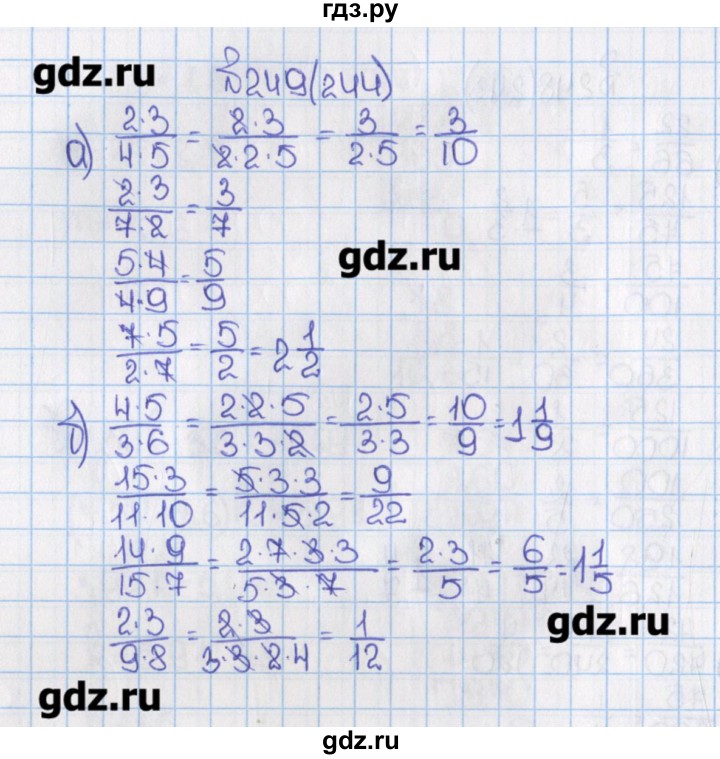 гдз.ру
gdz.ru
№249(244)
а) 2·3/4·5 = 2·3/2·2·5 = 3/2·5 = 3/10
2·3/7·2 = 3/7
gdz.ru
5·4/4·9 = 5/9
7·5/2·7 = 5/2 = 2 1/2
б) 4·5/3·6 = 2·2·5/3·3·2 = 2·5/3·3 = 10/9 = 1 1/9
15·3/11·10 = 5·3·3/11·5·2 = 9/22
14·9/15·7 = 2·7·3·3/5·3·7 = 2·3/5 = 6/5 = 1 1/5
gdz.ru
2·3/9·8 = 2·3/3·3·2·4 = 1/12
gdz.ru
gdz.ru